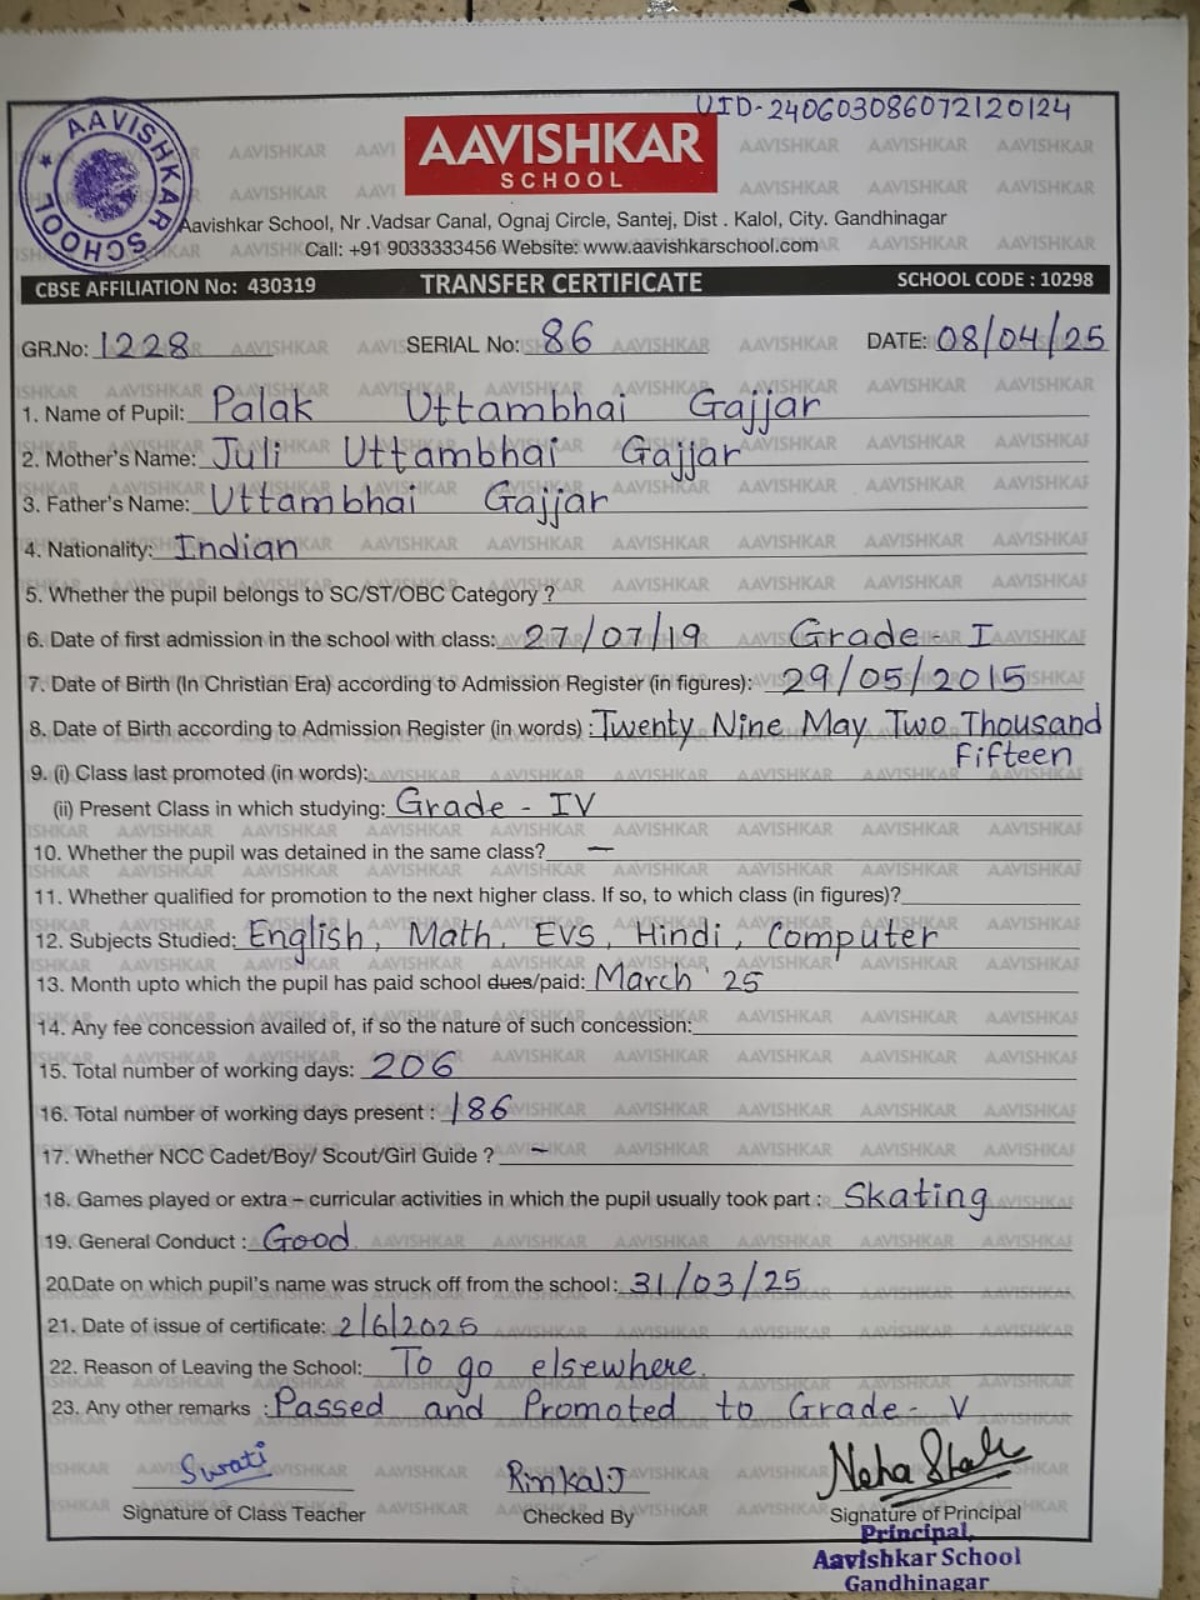 UID-240603086072120124
AAVISHKAR SCHOOL
AAVISHKAR
SCHOOL
Aavishkar School, Nr .Vadsar Canal, Ognaj Circle, Santej, Dist . Kalol, City. Gandhinagar
Call: +91 9033333456 Website: www.aavishkarschool.com
CBSE AFFILIATION No: 430319 TRANSFER CERTIFICATE SCHOOL CODE : 10298
GR.No: 1228 SERIAL No: 86 DATE: 08/04/25
1. Name of Pupil: Palak Uttambhai Gajjar
2. Mother's Name: Juli Uttambhai Gajjar
3. Father's Name: Uttambhai Gajjar
4. Nationality: Indian
5. Whether the pupil belongs to SC/ST/OBC Category ?
6. Date of first admission in the school with class: 27/07/19 Grade - I
7. Date of Birth (In Christian Era) according to Admission Register (in figures): 29/05/2015
8. Date of Birth according to Admission Register (in words) : Twenty Nine May Two Thousand
Fifteen
9. (i) Class last promoted (in words):
(ii) Present Class in which studying: Grade - IV
10. Whether the pupil was detained in the same class? —
11. Whether qualified for promotion to the next higher class. If so, to which class (in figures)?
12. Subjects Studied: English, Math, EVS, Hindi, Computer
13. Month upto which the pupil has paid school dues/paid: March '25
14. Any fee concession availed of, if so the nature of such concession:
15. Total number of working days: 206
16. Total number of working days present : 186
17. Whether NCC Cadet/Boy/ Scout/Girl Guide ? -
18. Games played or extra – curricular activities in which the pupil usually took part : Skating
19. General Conduct : Good
20.Date on which pupil's name was struck off from the school: 31/03/25
21. Date of issue of certificate: 2/6/2025
22. Reason of Leaving the School: To go elsewhere.
23. Any other remarks : Passed and Promoted to Grade - V
Swati Rinkal J Neha Shah
Signature of Class Teacher Checked By Signature of Principal
Principal,
Aavishkar School
Gandhinagar